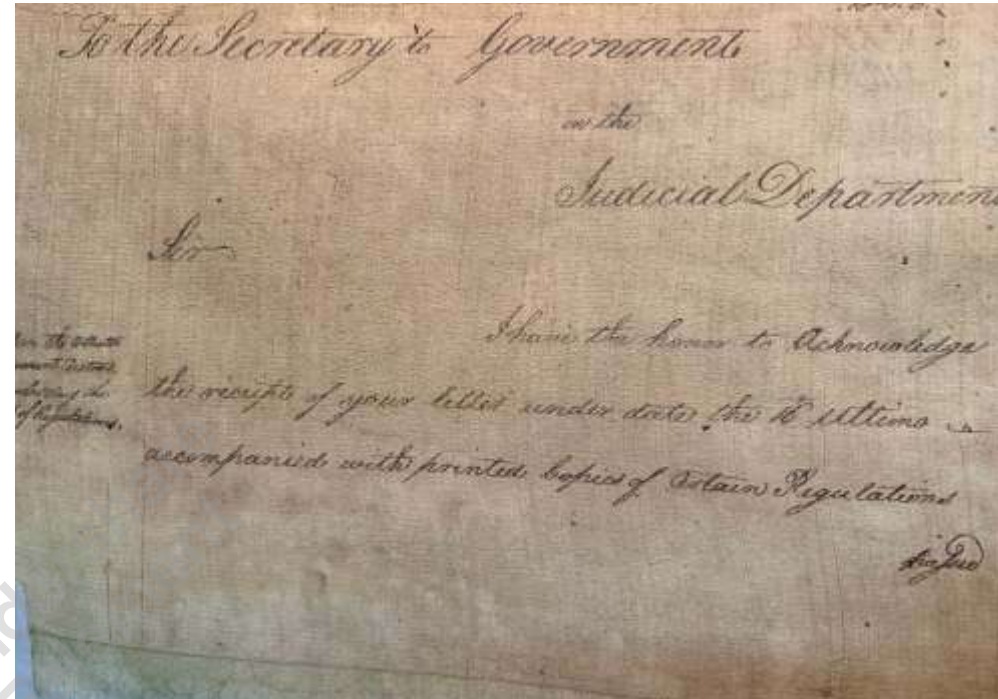 To the Secretary to Government
in the
Judicial Department
Sir
I have the honor to Acknowledge
the receipt of your letter under date the 16 Ultimo
accompanied with printed Copies of Certain Regulations
of Regulations.